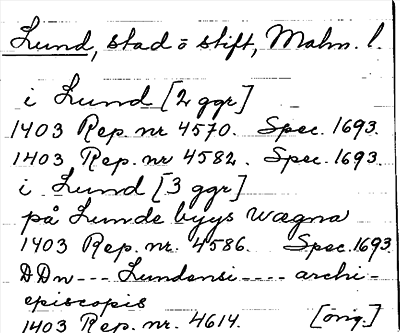 Lund, stad o stift, Malm. l.
i Lund [2 ggr]
1403 Rep. nr 4570. Spec. 1693.
1403 Rep. nr 4582. Spec. 1693.
i Lund [3 ggr]
på Lunde byys wægna
1403 Rep. nr. 4586. Spec. 1693
DDn --- Lundensi ---- archi-
episcopis
1403 Rep. nr. 4614. [orig.]